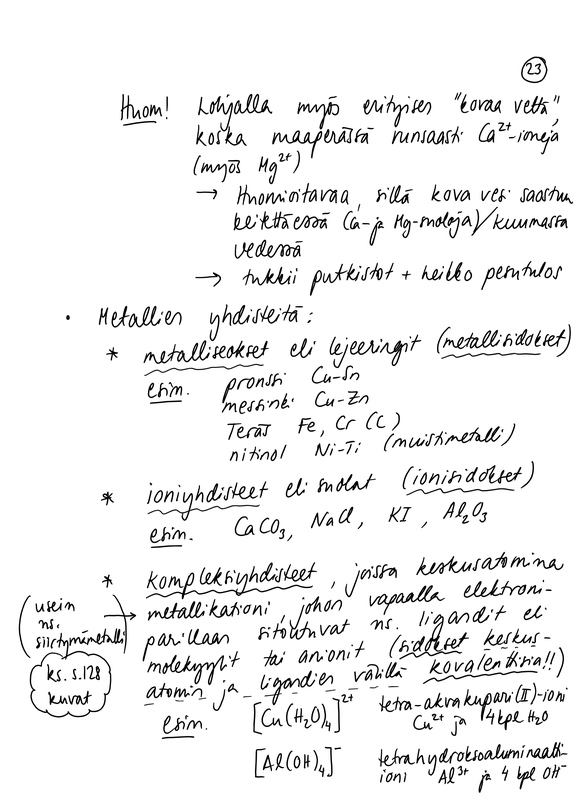 23
Huom! Lohjalla myös erityisen "kovaa vettä",
koska maaperässä runsaasti Ca²⁺-ioneja
(myös Mg²⁺)
→ Huomioitavaa, sillä kova vesi saostuu
keitettäessä (Ca- ja Mg-suoloja)/kuumassa
vedessä
→ tukkii putkistot + heikko pesutulos
• Metallien yhdisteitä:
* metalliseokset eli lejeeringit (metallisidokset)
esim. pronssi Cu-Sn
messinki Cu-Zn
Teräs Fe, Cr (C)
nitinol Ni-Ti (muistimetalli)
* ioniyhdisteet eli suolat (ionisidokset)
esim. CaCO₃, NaCl, KI, Al₂O₃
* kompleksiyhdisteet, joissa keskusatomina
(usein ns. siirtymämetalli) → metallikationi, johon vapaalla elektroni-
parillaan sitoutuvat ns. ligandit eli
molekyylit tai anionit (sidokset keskus-
atomin ja ligandien välillä kovalenttisia!!)
ks. s.128
kuvat
esim. [Cu(H₂O)₄]²⁺ tetra-akvakupari(II)-ioni
Cu²⁺ ja 4 kpl H₂O
[Al(OH)₄]⁻ tetrahydroksoaluminaatti-
ioni Al³⁺ ja 4 kpl OH⁻